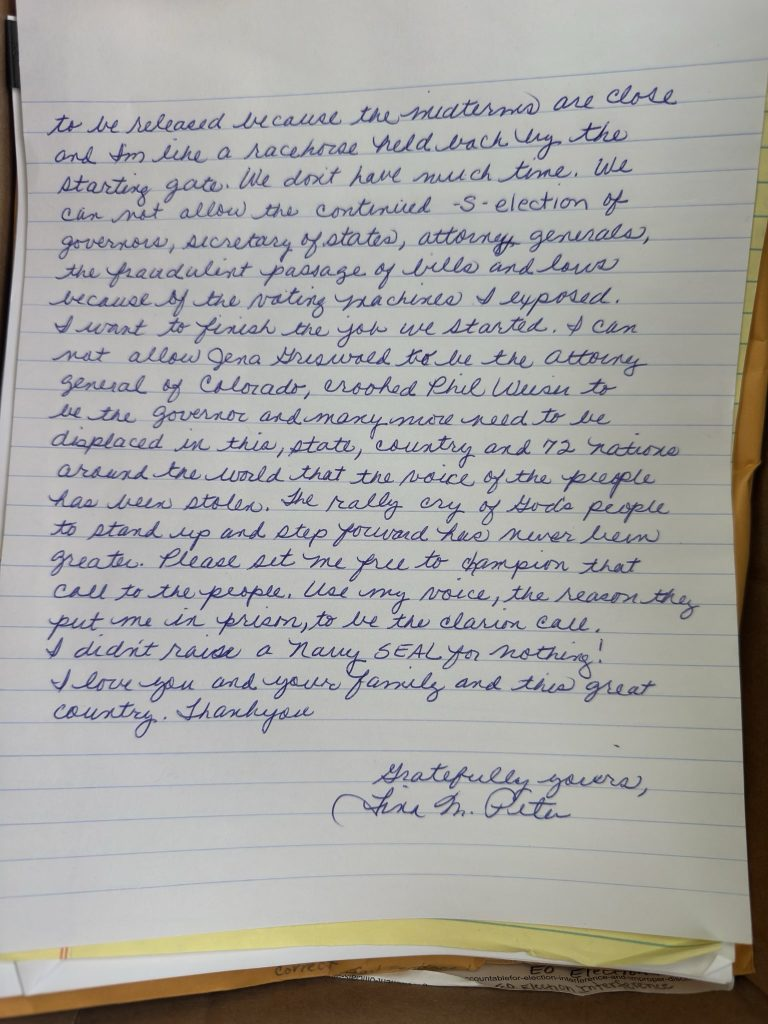 to be released because the midterms are close
and I'm like a racehorse held back by the
starting gate. We don't have much time. We
can not allow the continued -S- election of
governors, secretary of states, attorney generals,
the fraudulent passage of bills and laws
because of the voting machines I exposed.
I want to finish the job we started. I can
not allow Jena Griswold to be the attorny
general of Colorado, crooked Phil Weiser to
be the governor and many more need to be
displaced in this, state, country and 72 nations
around the world that the voice of the people
has been stolen. The rally cry of God's people
to stand up and step forward has never been
greater. Please set me free to champion that
call to the people. Use my voice, the reason they
put me in prison, to be the clarion call.
I didn't raise a Navy SEAL for nothing!
I love you and your family and this great
country. Thankyou
Gratefully yours,
Tina M. Peters
correct
countablefor-election-interference-and-improper-disc
EO Election
EO Election Interference